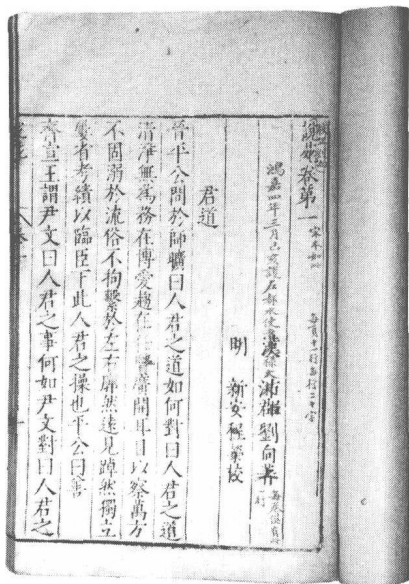 說苑卷第一
宋本如此
每頁十一行每行二十字
鴻嘉四年三月己亥護左都水使者
漢沛郡劉向著
每卷俱有此行
明 新安程榮校
君道
晉平公問於師曠曰人君之道如何對曰人君之道
清淨無為務在博愛趨在任賢廣開耳目以察萬方
不固溺於流俗不拘繫於左右廓然遠見踔然獨立
屢省考績以臨臣下此人君之操也平公曰善
齊宣王謂尹文曰人君之事何如尹文對曰人君之